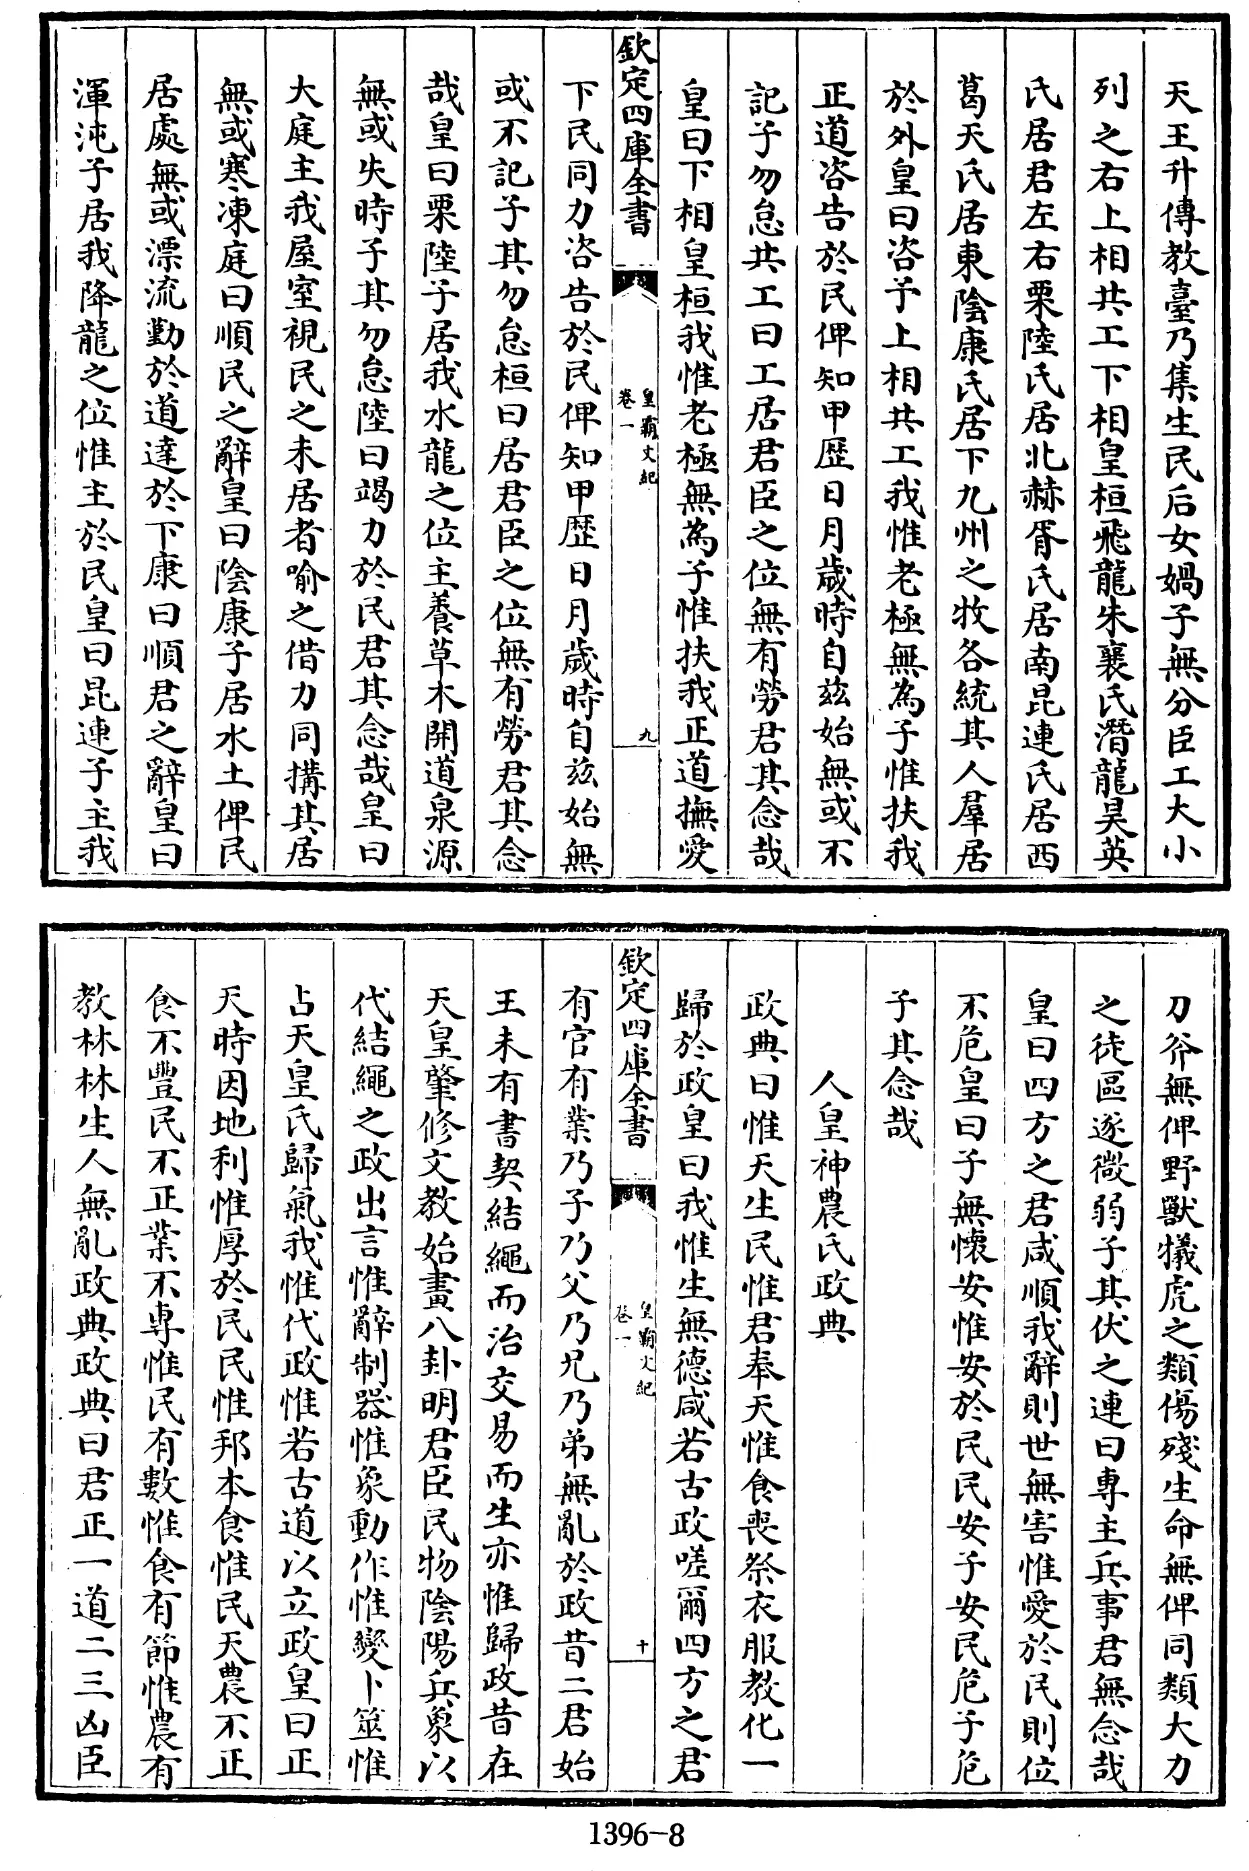 天王升傳教臺乃集生民后女媧子無分臣工大小
列之右上相共工下相皇桓飛龍朱襄氏潛龍昊英
氏居君左右栗陸氏居北赫胥氏居南昆連氏居西
葛天氏居東陰康氏居下九州之牧各統其人羣居
於外皇曰咨予上相共工我惟老極無為子惟扶我
正道咨告於民俾知甲歷日月歲時自茲始無或不
記子勿怠共工曰工居君臣之位無有勞君其念哉
皇曰下相皇桓我惟老極無為子惟扶我正道撫愛
欽定四庫全書
皇霸文紀
卷一
九
下民同力咨告於民俾知甲歷日月歲時自茲始無
或不記子其勿怠桓曰居君臣之位無有勞君其念
哉皇曰栗陸子居我水龍之位主養草木開道泉源
無或失時子其勿怠陸曰竭力於民君其念哉皇曰
大庭主我屋室視民之未居者喻之借力同搆其居
無或寒凍庭曰順民之辭皇曰陰康子居水土俾民
居處無或漂流勤於道達於下康曰順君之辭皇曰
渾沌子居我降龍之位惟主於民皇曰昆連子主我
刀斧無俾野獸犧虎之類傷殘生命無俾同類大力
之徒區逐微弱子其伏之連曰專主兵事君無念哉
皇曰四方之君咸順我辭則世無害惟愛於民則位
不危皇曰子無懷安惟安於民民安子安民危子危
子其念哉
人皇神農氏政典
政典曰惟天生民惟君奉天惟食喪祭衣服教化一
歸於政皇曰我惟生無德咸若古政嗟爾四方之君
欽定四庫全書
皇霸文紀
卷一
十
有官有業乃子乃父乃兄乃弟無亂於政昔二君始
王未有書契結繩而治交易而生亦惟歸政昔在
天皇肇修文教始畫八卦明君臣民物陰陽兵象以
代結繩之政出言惟辭制器惟象動作惟變卜筮惟
占天皇氏歸氣我惟代政惟若古道以立政皇曰正
天時因地利惟厚於民民惟邦本食惟民天農不正
食不豐民不正業不專惟民有數惟食有節惟農有
教林林生人無亂政典政典曰君正一道二三凶臣
1396-8